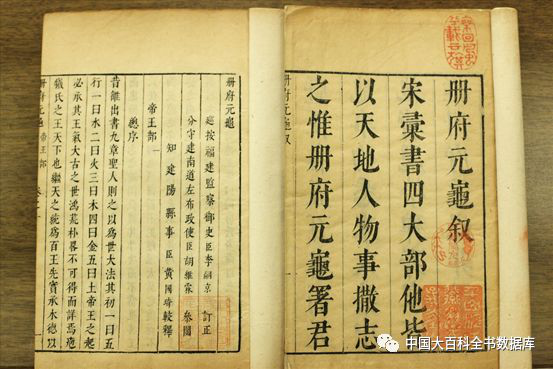 册府元龜叙
宋彙書四大部他皆
以天地人物事撒志
之惟册府元龜署君
册府元龜叙
册府元龜
巡按福建監察御史臣李嗣京 訂正
分守建南道左布政使臣胡維霖 參閱
知建陽縣事臣黃國琦較釋
帝王部一
總序
昔雒出書九章聖人則之以爲世大法其初一曰五
行一曰水二曰火三曰木四曰金五曰土帝王之起
必承其王氣大古之世鴻荒朴畧不可得而詳焉庖
戲氏之王天下也繼天之統爲百王先實承木德以
册府元龜 帝王部
中国大百科全书数据库